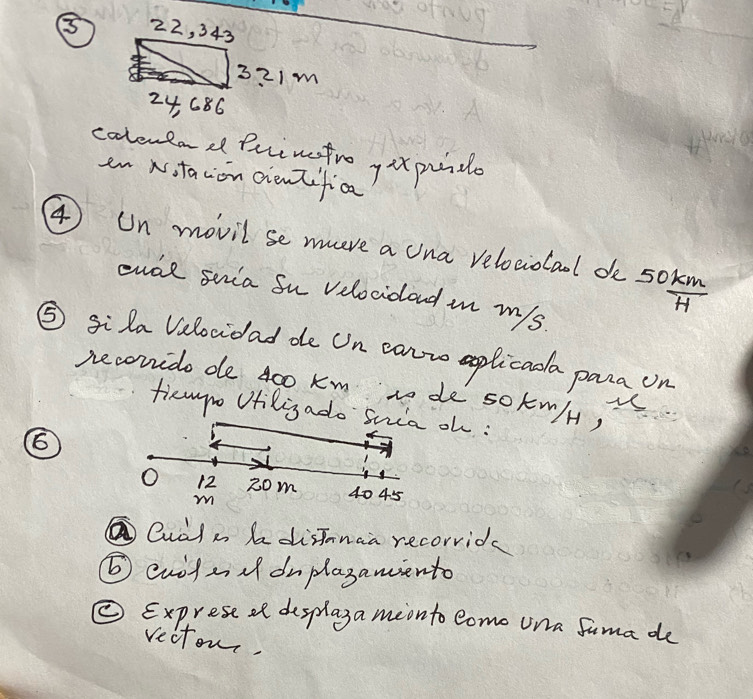 ③ 22,343
321 m
24,686
calcular el Perimetro y expréselo
en Notación cientifica
④ Un móvil se mueve a Una velocidad de 50 Km/H
cuál sería su velocidad en m/s.
⑤ si la Velocidad de Un carro aplicada para Un
recorrido de 400 Km es de 50 Km/H, el
tiempo Utilizado sería de:
⑥
0 12 m 20 m 40 45
ⓐ Cuál es la distancia recorrida
ⓑ cuál es el desplazamiento
ⓒ Exprese el desplazameinto como una suma de
vectores.